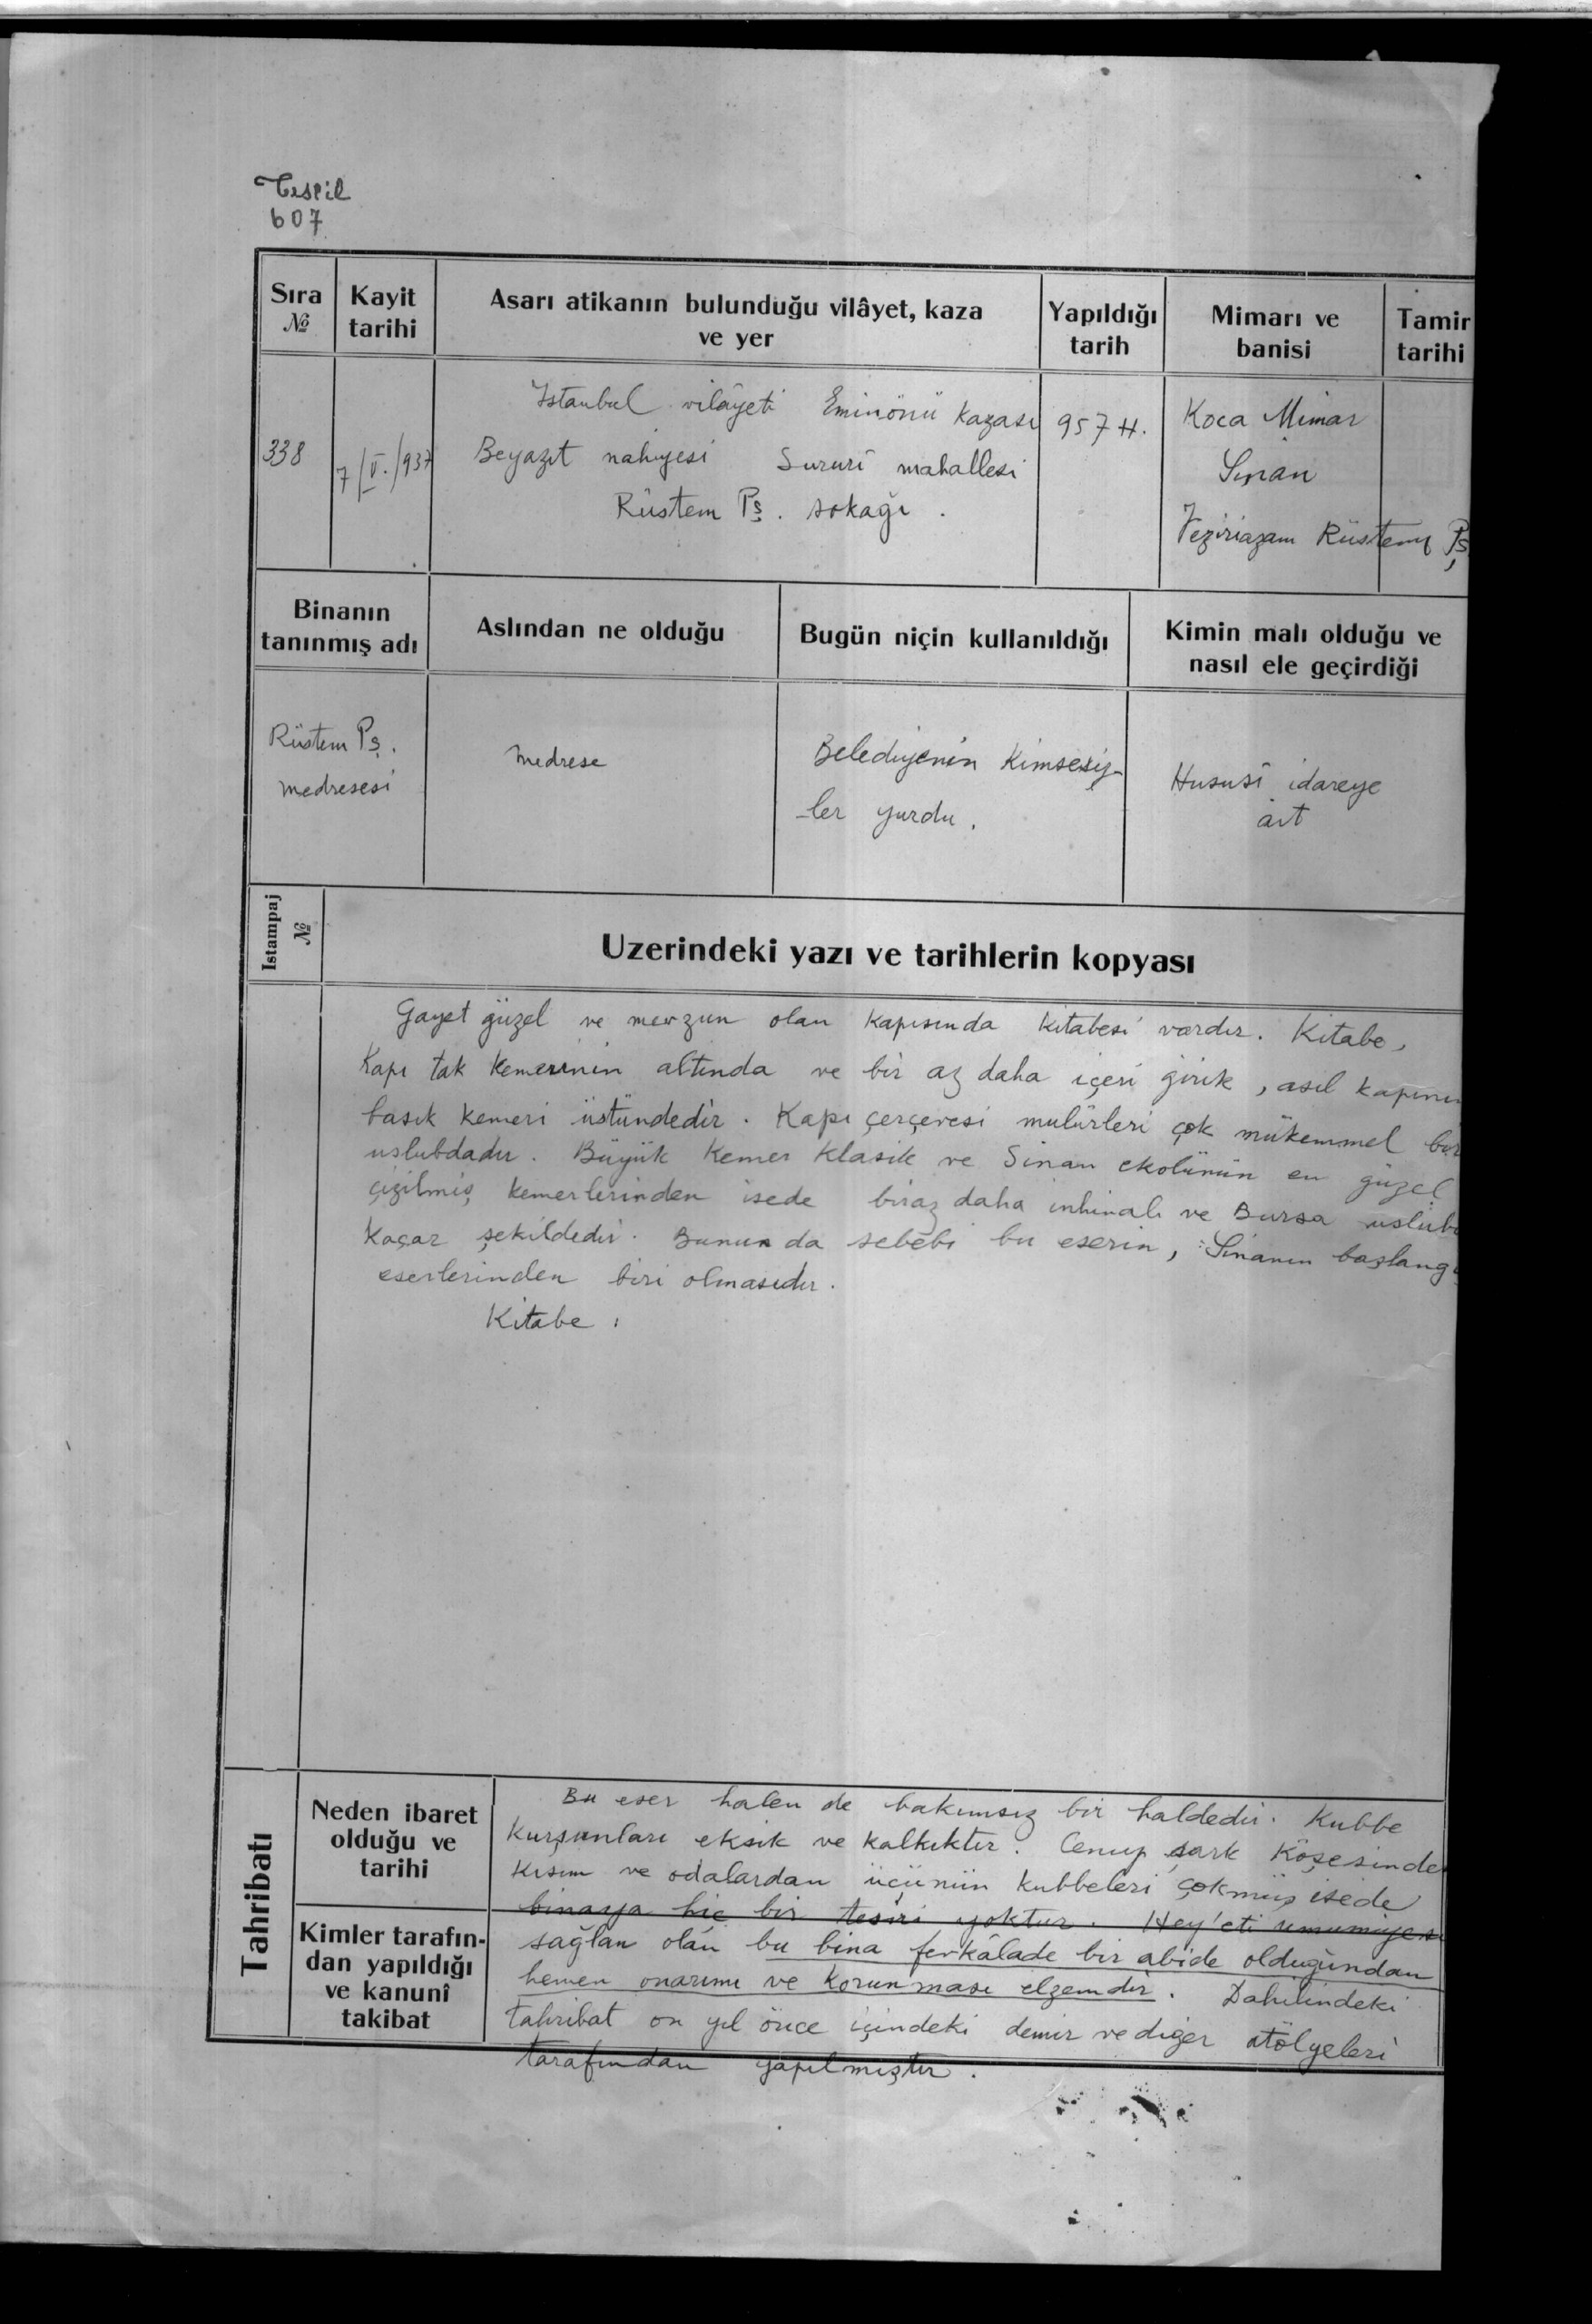 Tescil
607
Sıra
№
Kayit
tarihi
Asarı atikanın bulunduğu vilâyet, kaza
ve yer
Yapıldığı
tarih
Mimarı ve
banisi
Tamir
tarihi
338
7/V./937
Istanbul vilâyeti Eminönü kazası
Beyazıt nahiyesi Sururî mahallesi
Rüstem Pş. sokağı.
957 H.
Koca Mimar
Sinan
Veziriazam Rüstem Pş
Binanın
tanınmış adı
Aslından ne olduğu
Bugün niçin kullanıldığı
Kimin malı olduğu ve
nasıl ele geçirdiği
Rüstem Pş.
medresesi
medrese
Belediyenin Kimsesiz-
-ler yurdu.
Hususî idareye
ait
Istampaj
№
Uzerindeki yazı ve tarihlerin kopyası
Gayet güzel ve mevzun olan kapısında kitabesi vardır. Kitabe,
Kapı tak kemerinin altında ve bir az daha içeri girik, asıl kapının
basık kemeri üstündedir. Kapı çerçevesi mulürleri çok mükemmel bir
uslubdadır. Büyük kemer klasik ve Sinan ekolünün en güzel
çizilmiş kemerlerinden isede biraz daha inhinalı ve Bursa uslubu
Kaçar şekildedir. Bunun da sebebi bu eserin, Sinanın başlangı
eserlerinden biri olmasıdır.
Kitabe :
Tahribatı
Neden ibaret
olduğu ve
tarihi
Kimler tarafın-
dan yapıldığı
ve kanunî
takibat
Bu eser halen de bakımsız bir haldedir. Kubbe
Kurşunları eksik ve kalkıktır. Cenup şark köşesinde
kısım ve odalardan üçünün kubbeleri çökmüş isede
binaya hiç bir tesiri yoktur. Hey'eti umumiyesi
sağlan olan bu bina fevkâlade bir abide olduğundan
hemen onarımı ve korunması elzemdir. Dahilindeki
tahribat on yıl önce içindeki demir ve diğer atölyeleri
tarafından yapılmıştır.